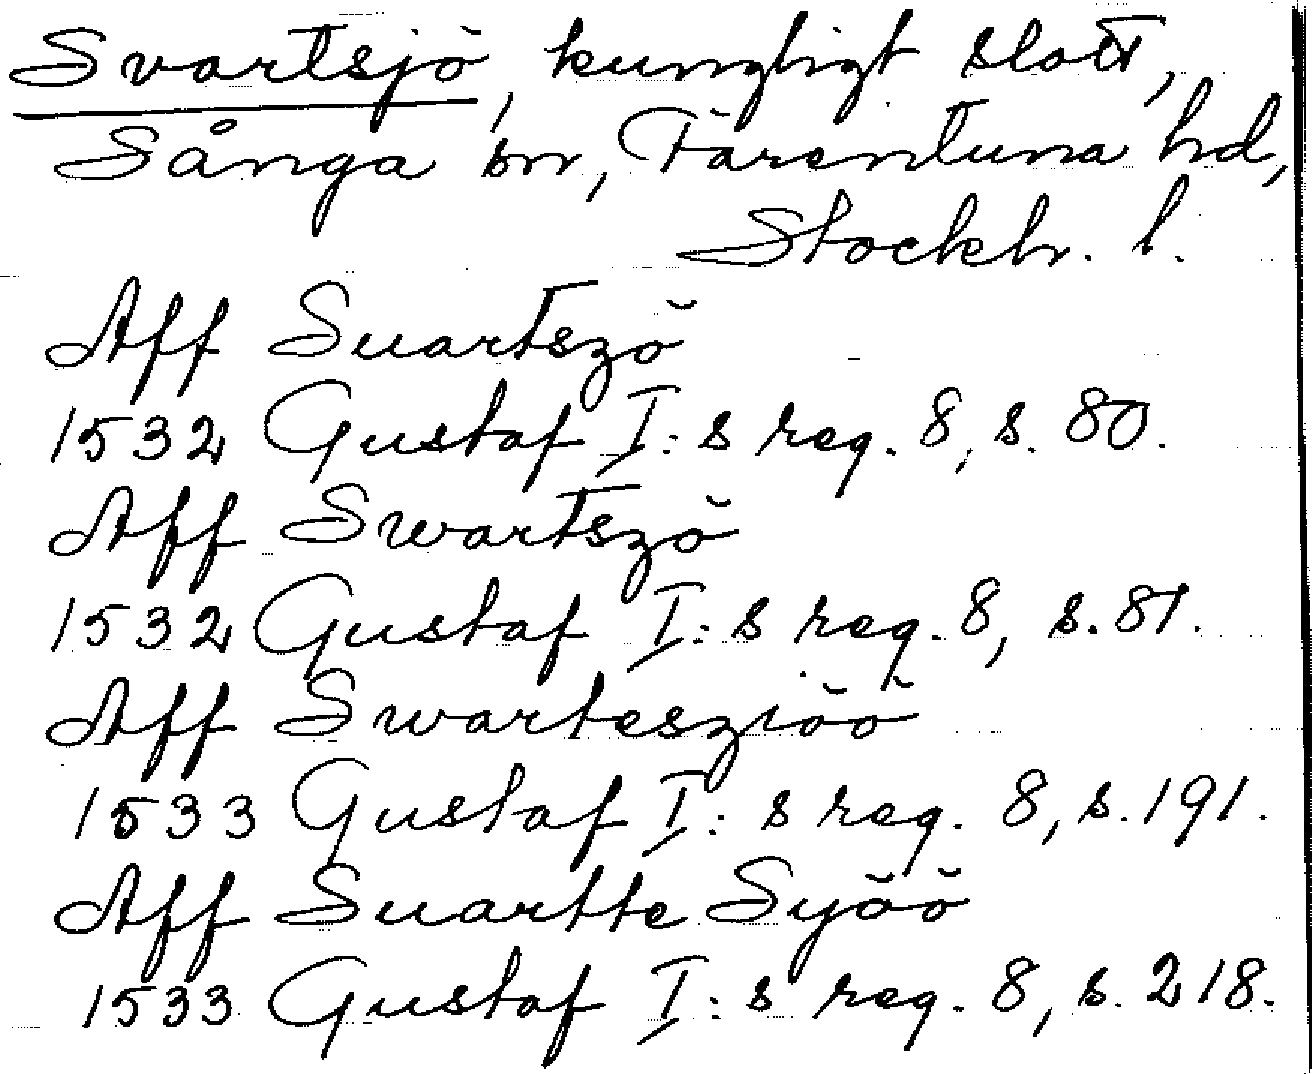 Svartsjö, kungligt slott,
Sånga sn, Färentuna hd,
Stockh. l.
Aff Suartszö
1532 Gustaf I:s reg. 8, s. 80.
Aff Swartszö
1532 Gustaf I:s reg. 8, s. 81.
Aff Swartesziöö
1533 Gustaf I:s reg. 8, s. 191.
Aff Suartte Syöö
1533 Gustaf I:s reg. 8, s. 218.